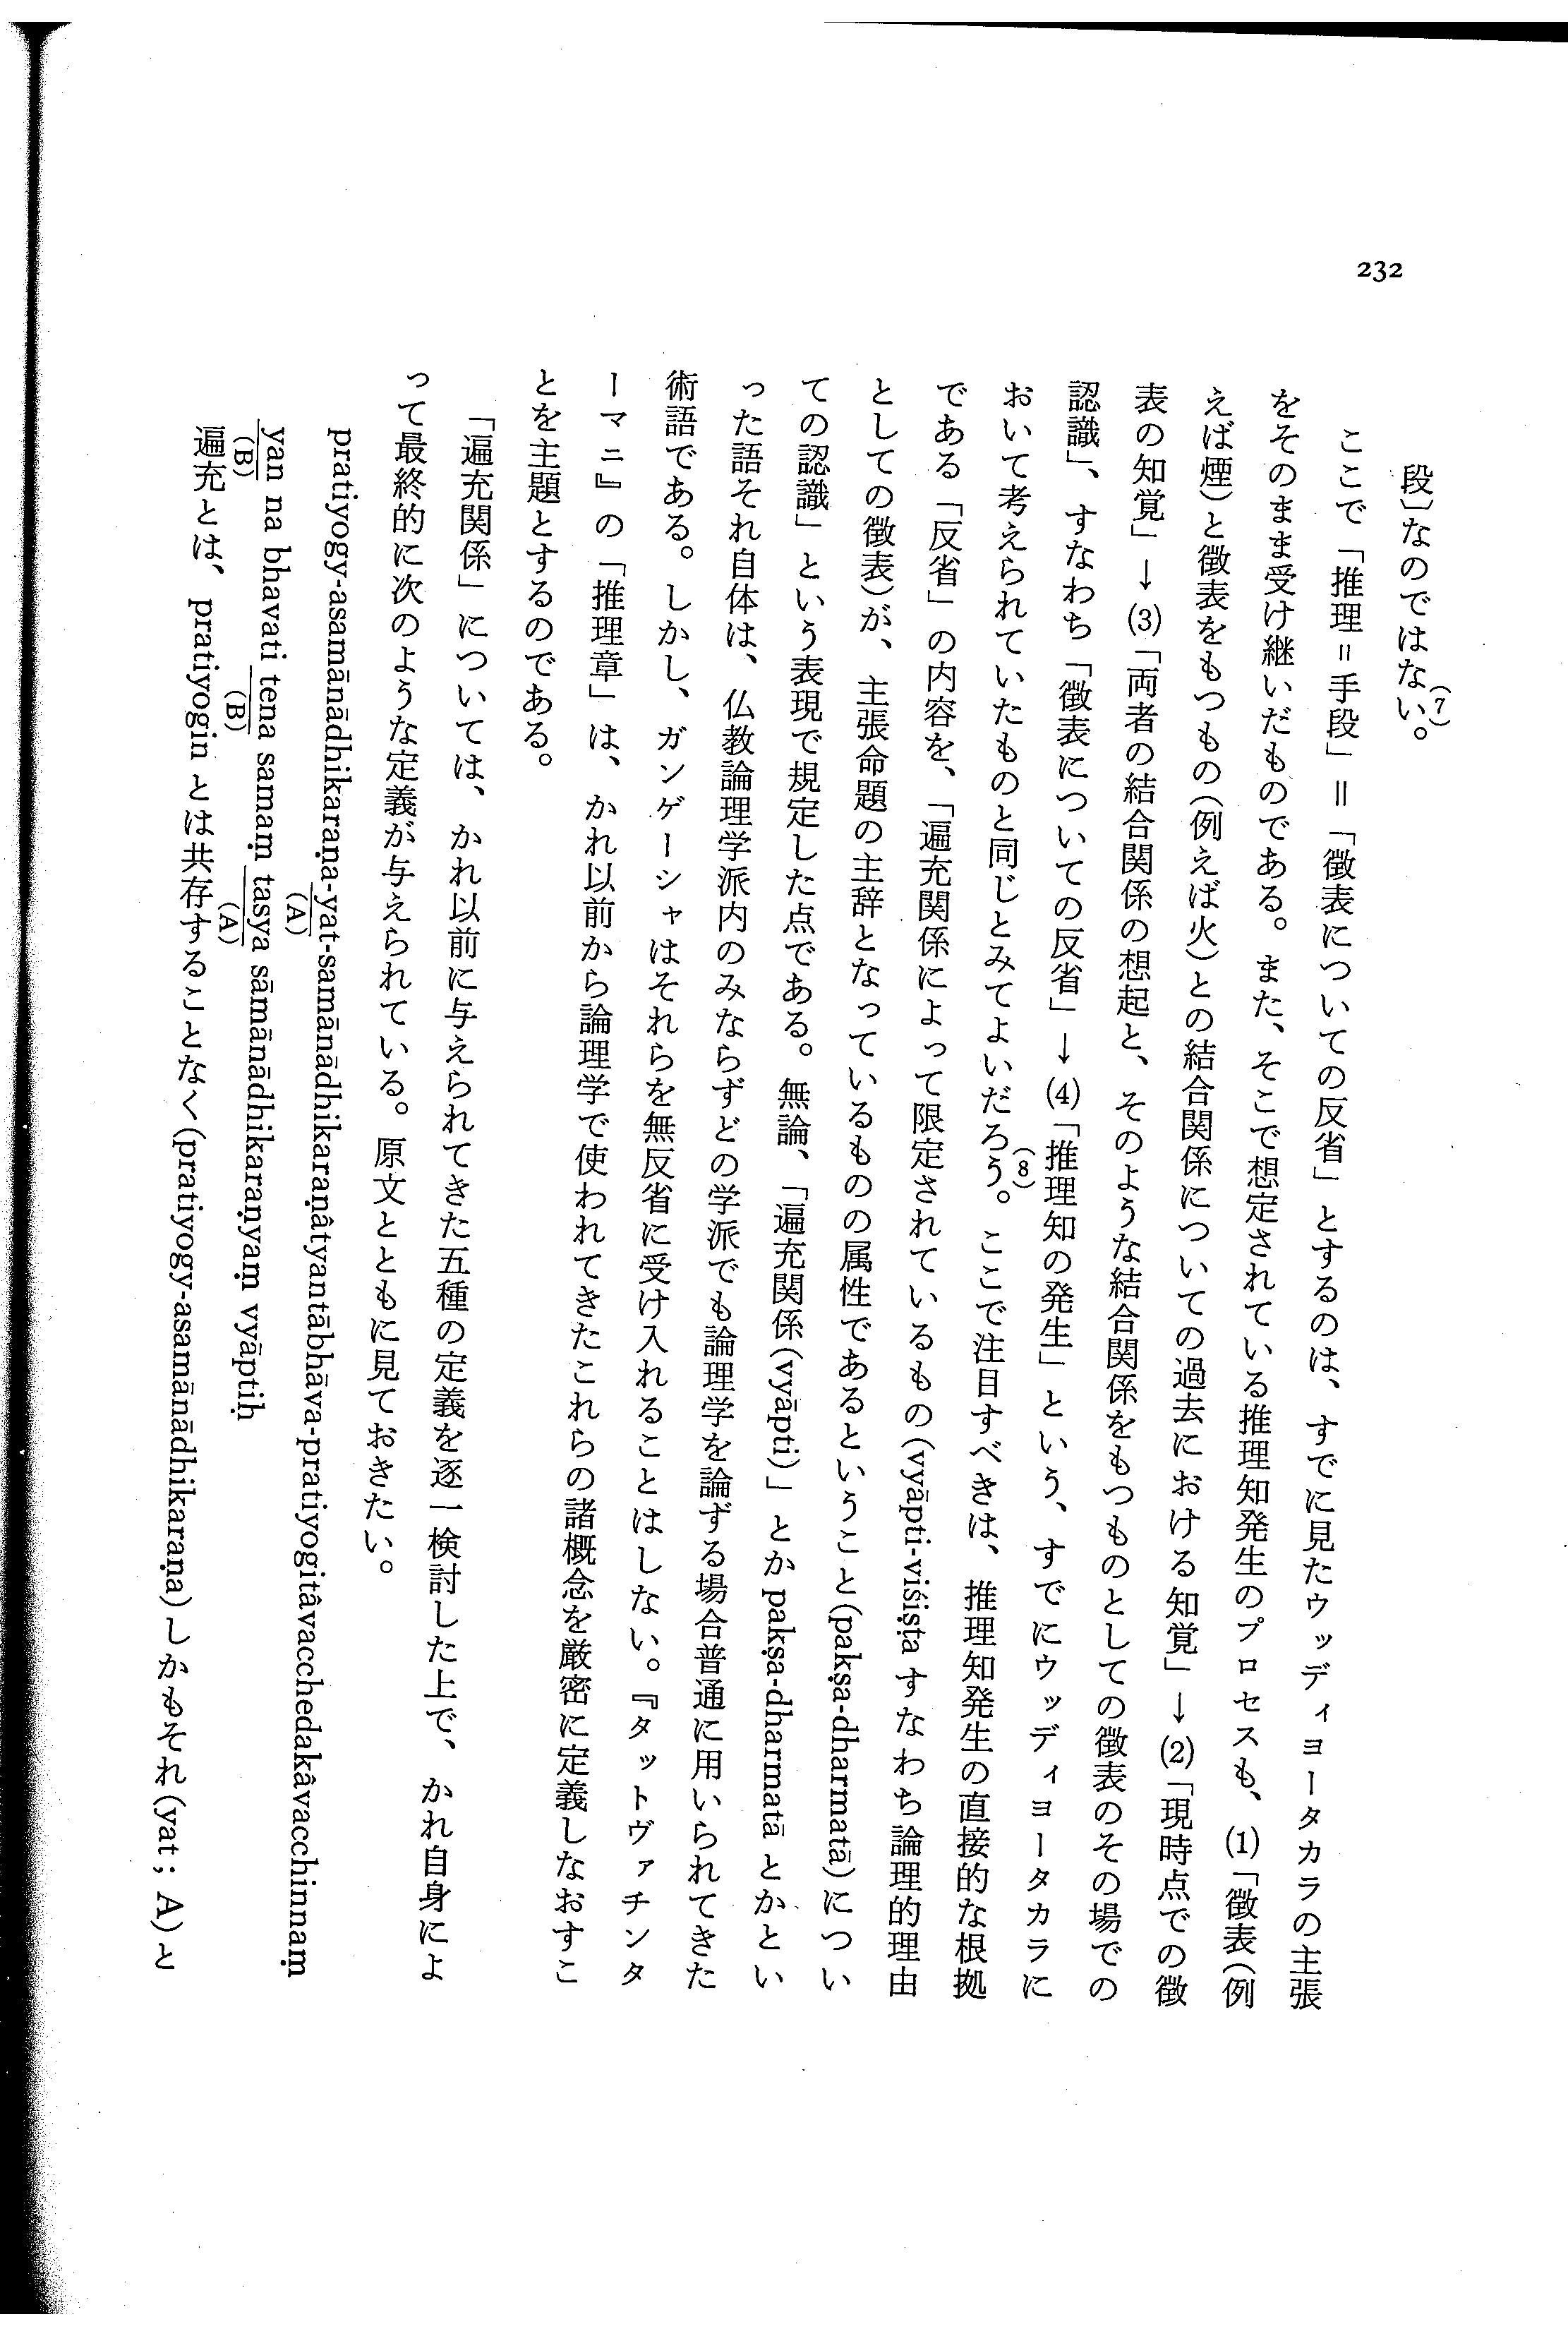 232
段〕なのではない。(7)
ここで「推理＝手段」＝「徴表についての反省」とするのは、すでに見たウッディヨータカラの主張
をそのまま受け継いだものである。また、そこで想定されている推理知発生のプロセスも、(1)「徴表(例
えば煙)と徴表をもつもの(例えば火)との結合関係についての過去における知覚」→(2)「現時点での徴
表の知覚」→(3)「両者の結合関係の想起と、そのような結合関係をもつものとしての徴表のその場での
認識」、すなわち「徴表についての反省」→(4)「推理知の発生」という、すでにウッディヨータカラに
おいて考えられていたものと同じとみてよいだろう。(8)ここで注目すべきは、推理知発生の直接的な根拠
である「反省」の内容を、「遍充関係によって限定されているもの(vyāpti-viśiṣṭa すなわち論理的理由
としての徴表)が、主張命題の主辞となっているものの属性であるということ(pakṣa-dharmatā)につい
ての認識」という表現で規定した点である。無論、「遍充関係(vyāpti)」とか pakṣa-dharmatā とかとい
った語それ自体は、仏教論理学派内のみならずどの学派でも論理学を論ずる場合普通に用いられてきた
術語である。しかし、ガンゲーシャはそれらを無反省に受け入れることはしない。『タットヴァチンタ
ーマニ』の「推理章」は、かれ以前から論理学で使われてきたこれらの諸概念を厳密に定義しなおすこ
とを主題とするのである。
「遍充関係」については、かれ以前に与えられてきた五種の定義を逐一検討した上で、かれ自身によ
って最終的に次のような定義が与えられている。原文とともに見ておきたい。
pratiyogy-asamānādhikaraṇa-yat-samānādhikaraṇâtyantābhāva-pratiyogitâvacchedakâvacchinnaṃ
(A)
yan na bhavati tena samaṃ tasya sāmānādhikaraṇyaṃ vyāptiḥ
(B) (B) (A)
遍充とは、pratiyogin とは共存することなく(pratiyogy-asamānādhikaraṇa)しかもそれ(yat; A)と